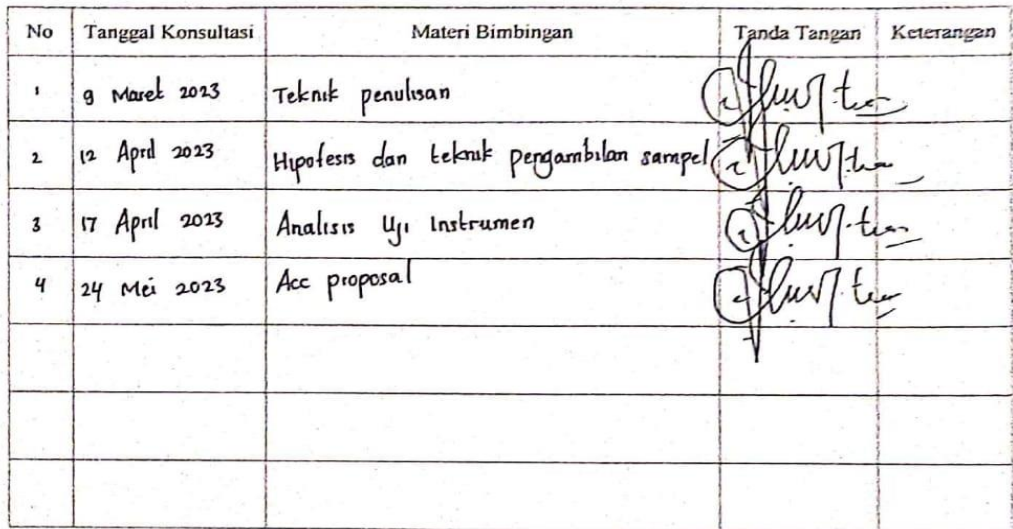 No Tanggal Konsultasi Materi Bimbingan Tanda Tangan Keterangan
1 9 Maret 2023 Teknik penulisan
2 12 April 2023 Hipotesis dan teknik pengambilan sampel
3 17 April 2023 Analisis Uji Instrumen
4 24 Mei 2023 Acc proposal